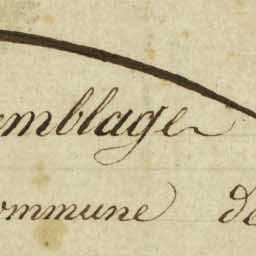 emblage
ommune de